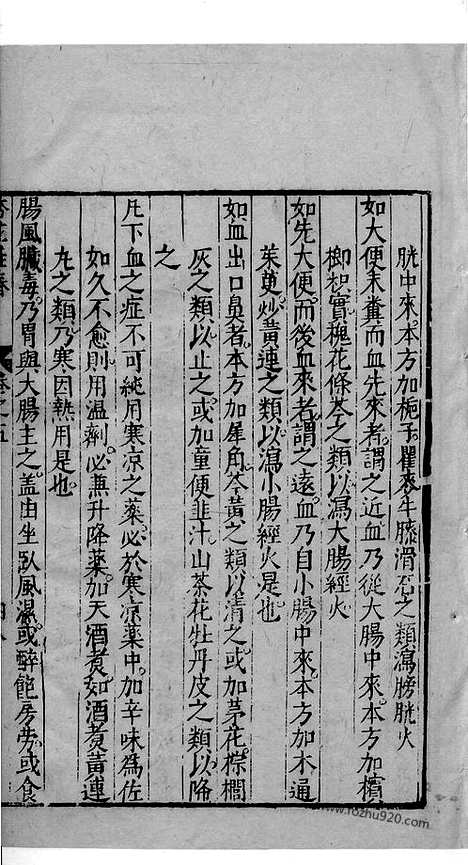 胱中來本方加梔子瞿麥牛膝滑石之類瀉膀胱火
如大便未糞而血先來者謂之近血乃從大腸中來本方加檳
榔枳實槐花條芩之類以瀉大腸經火
如先大便而後血來者謂之遠血乃自小腸中來本方加木通
茱萸炒黃連之類以瀉小腸經火是也
如血出口鼻者本方加犀角芩黃之類以清之或加茅花棕櫚
灰之類以止之或加童便韭汁山茶花牡丹皮之類以降
之
凡下血之症不可純用寒凉之藥必於寒凉藥中加辛味為佐
如久不愈則用溫劑必兼升降藥加天酒煮如酒煮黃連
九之類乃寒因熱用是也
腸風臟毒乃胃與大腸主之蓋由坐臥風濕或醉飽房勞或食
卷之五
www.fozhu920.com